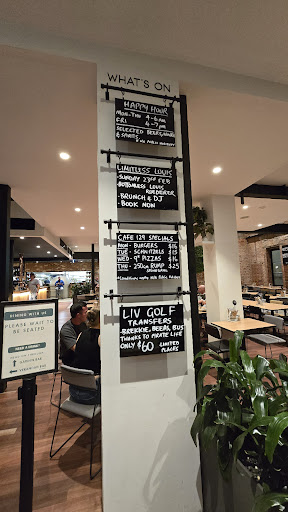 WHAT'S ON
HAPPY HOUR
MON-THU 4-6PM
FRI 4-7PM
SELECTED BEERS, WINES
& SPIRITS
LIMITLESS LOUIS
- SUNDAY 23RD FEB
- BOTTOMLESS LOUIS
ROEDERER
- BRUNCH & DJ
- BOOK NOW
CAFE 129 SPECIALS
MON - BURGERS $15
TUE - SCHNITZELS $15
WED - 9" PIZZAS $15
THU - 250GM RUMP $25
LIV GOLF
TRANSFERS
- BREKKIE, BEERS, BUS
THANKS TO PIRATE LIFE
ONLY $60 LIMITED
PLACES
DINING WITH US
PLEASE WAIT TO
BE SEATED